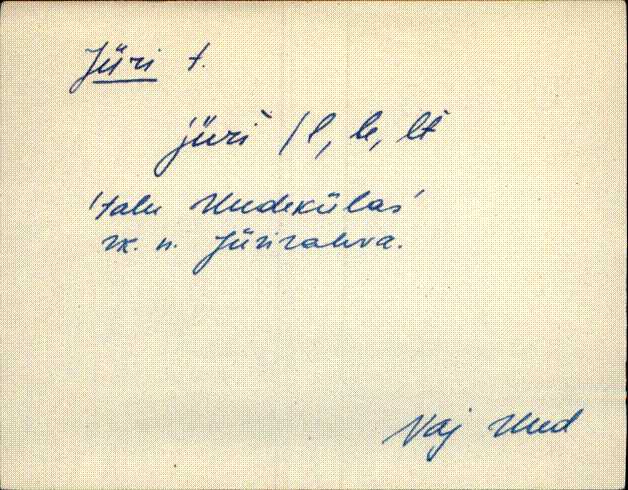 Jüri t.
jüri /l, le, lt
'talu Uuekülas'
rk. n. Jürirahva.
Vaj Uud